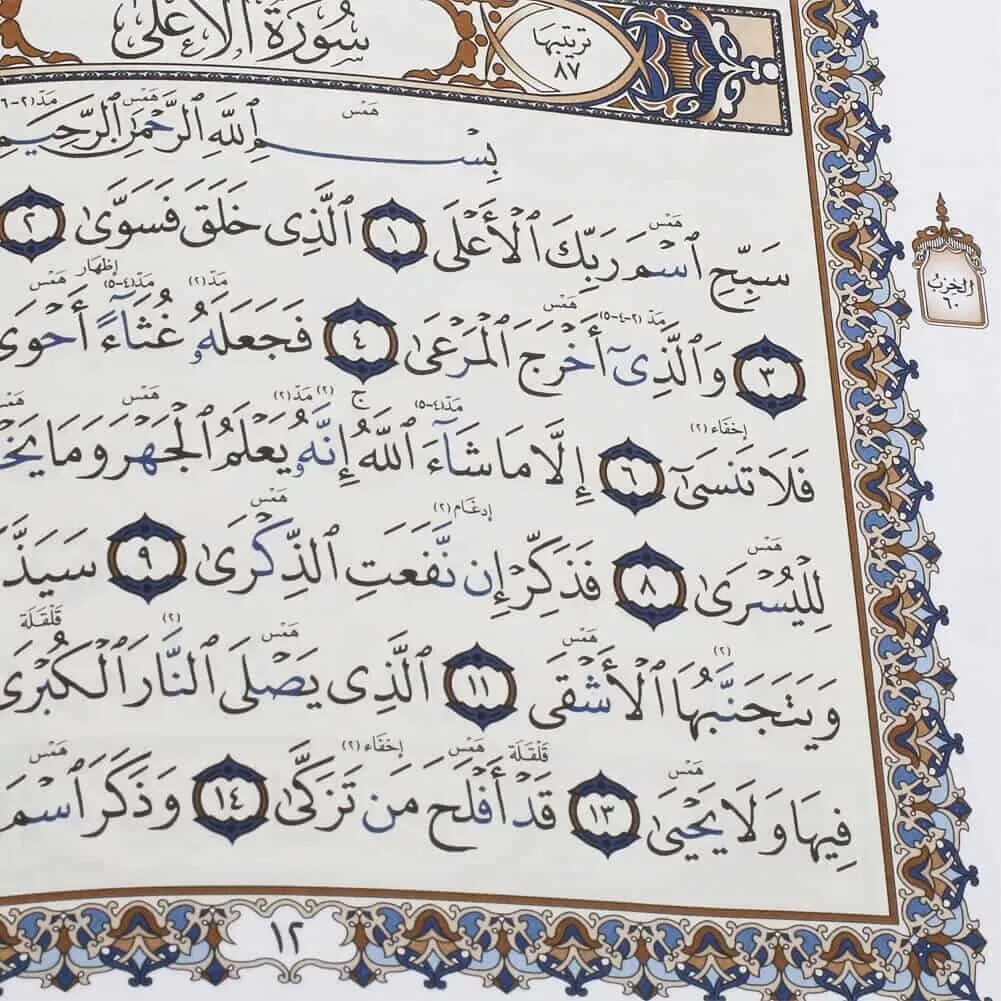 سُورَةُ الأَعْلَىٰ
ترتيبها
٨٧
هَمْس هَمْس مَدّ(٢-٦
بِسْمِ ٱللَّهِ ٱلرَّحْمَٰنِ ٱلرَّحِيمِ
هَمْس
سَبِّحِ ٱسْمَ رَبِّكَ ٱلْأَعْلَى ١ ٱلَّذِى خَلَقَ فَسَوَّىٰ ٢
الحِزبُ
٦٠
هَمْس مَدّ (٢-٤-٥) مَدّ(٢) مَدّ(٤-٥) إظهَار هَمْس
٣ وَٱلَّذِىٓ أَخْرَجَ ٱلْمَرْعَىٰ ٤ فَجَعَلَهُۥ غُثَآءً أَحْوَىٰ
إخفَاء (٢) مَدّ(٤-٥) ج (٢) مَدّ(٢) هَمْس
فَلَا تَنسَىٰٓ ٦ إِلَّا مَا شَآءَ ٱللَّهُ إِنَّهُۥ يَعْلَمُ ٱلْجَهْرَ وَمَا يَخْ
هَمْس إدغَام (٢) هَمْس
لِلْيُسْرَىٰ ٨ فَذَكِّرْ إِن نَّفَعَتِ ٱلذِّكْرَىٰ ٩ سَيَذَّ
(٢) هَمْس هَمْس (٢) قَلقَلَة
وَيَتَجَنَّبُهَا ٱلْأَشْقَى ١١ ٱلَّذِى يَصْلَى ٱلنَّارَ ٱلْكُبْرَىٰ
هَمْس قَلقَلَة هَمْس إخفَاء (٢) هَمْس
فِيهَا وَلَا يَحْيَىٰ ١٣ قَدْ أَفْلَحَ مَن تَزَكَّىٰ ١٤ وَذَكَرَ ٱسْمَ
١٢